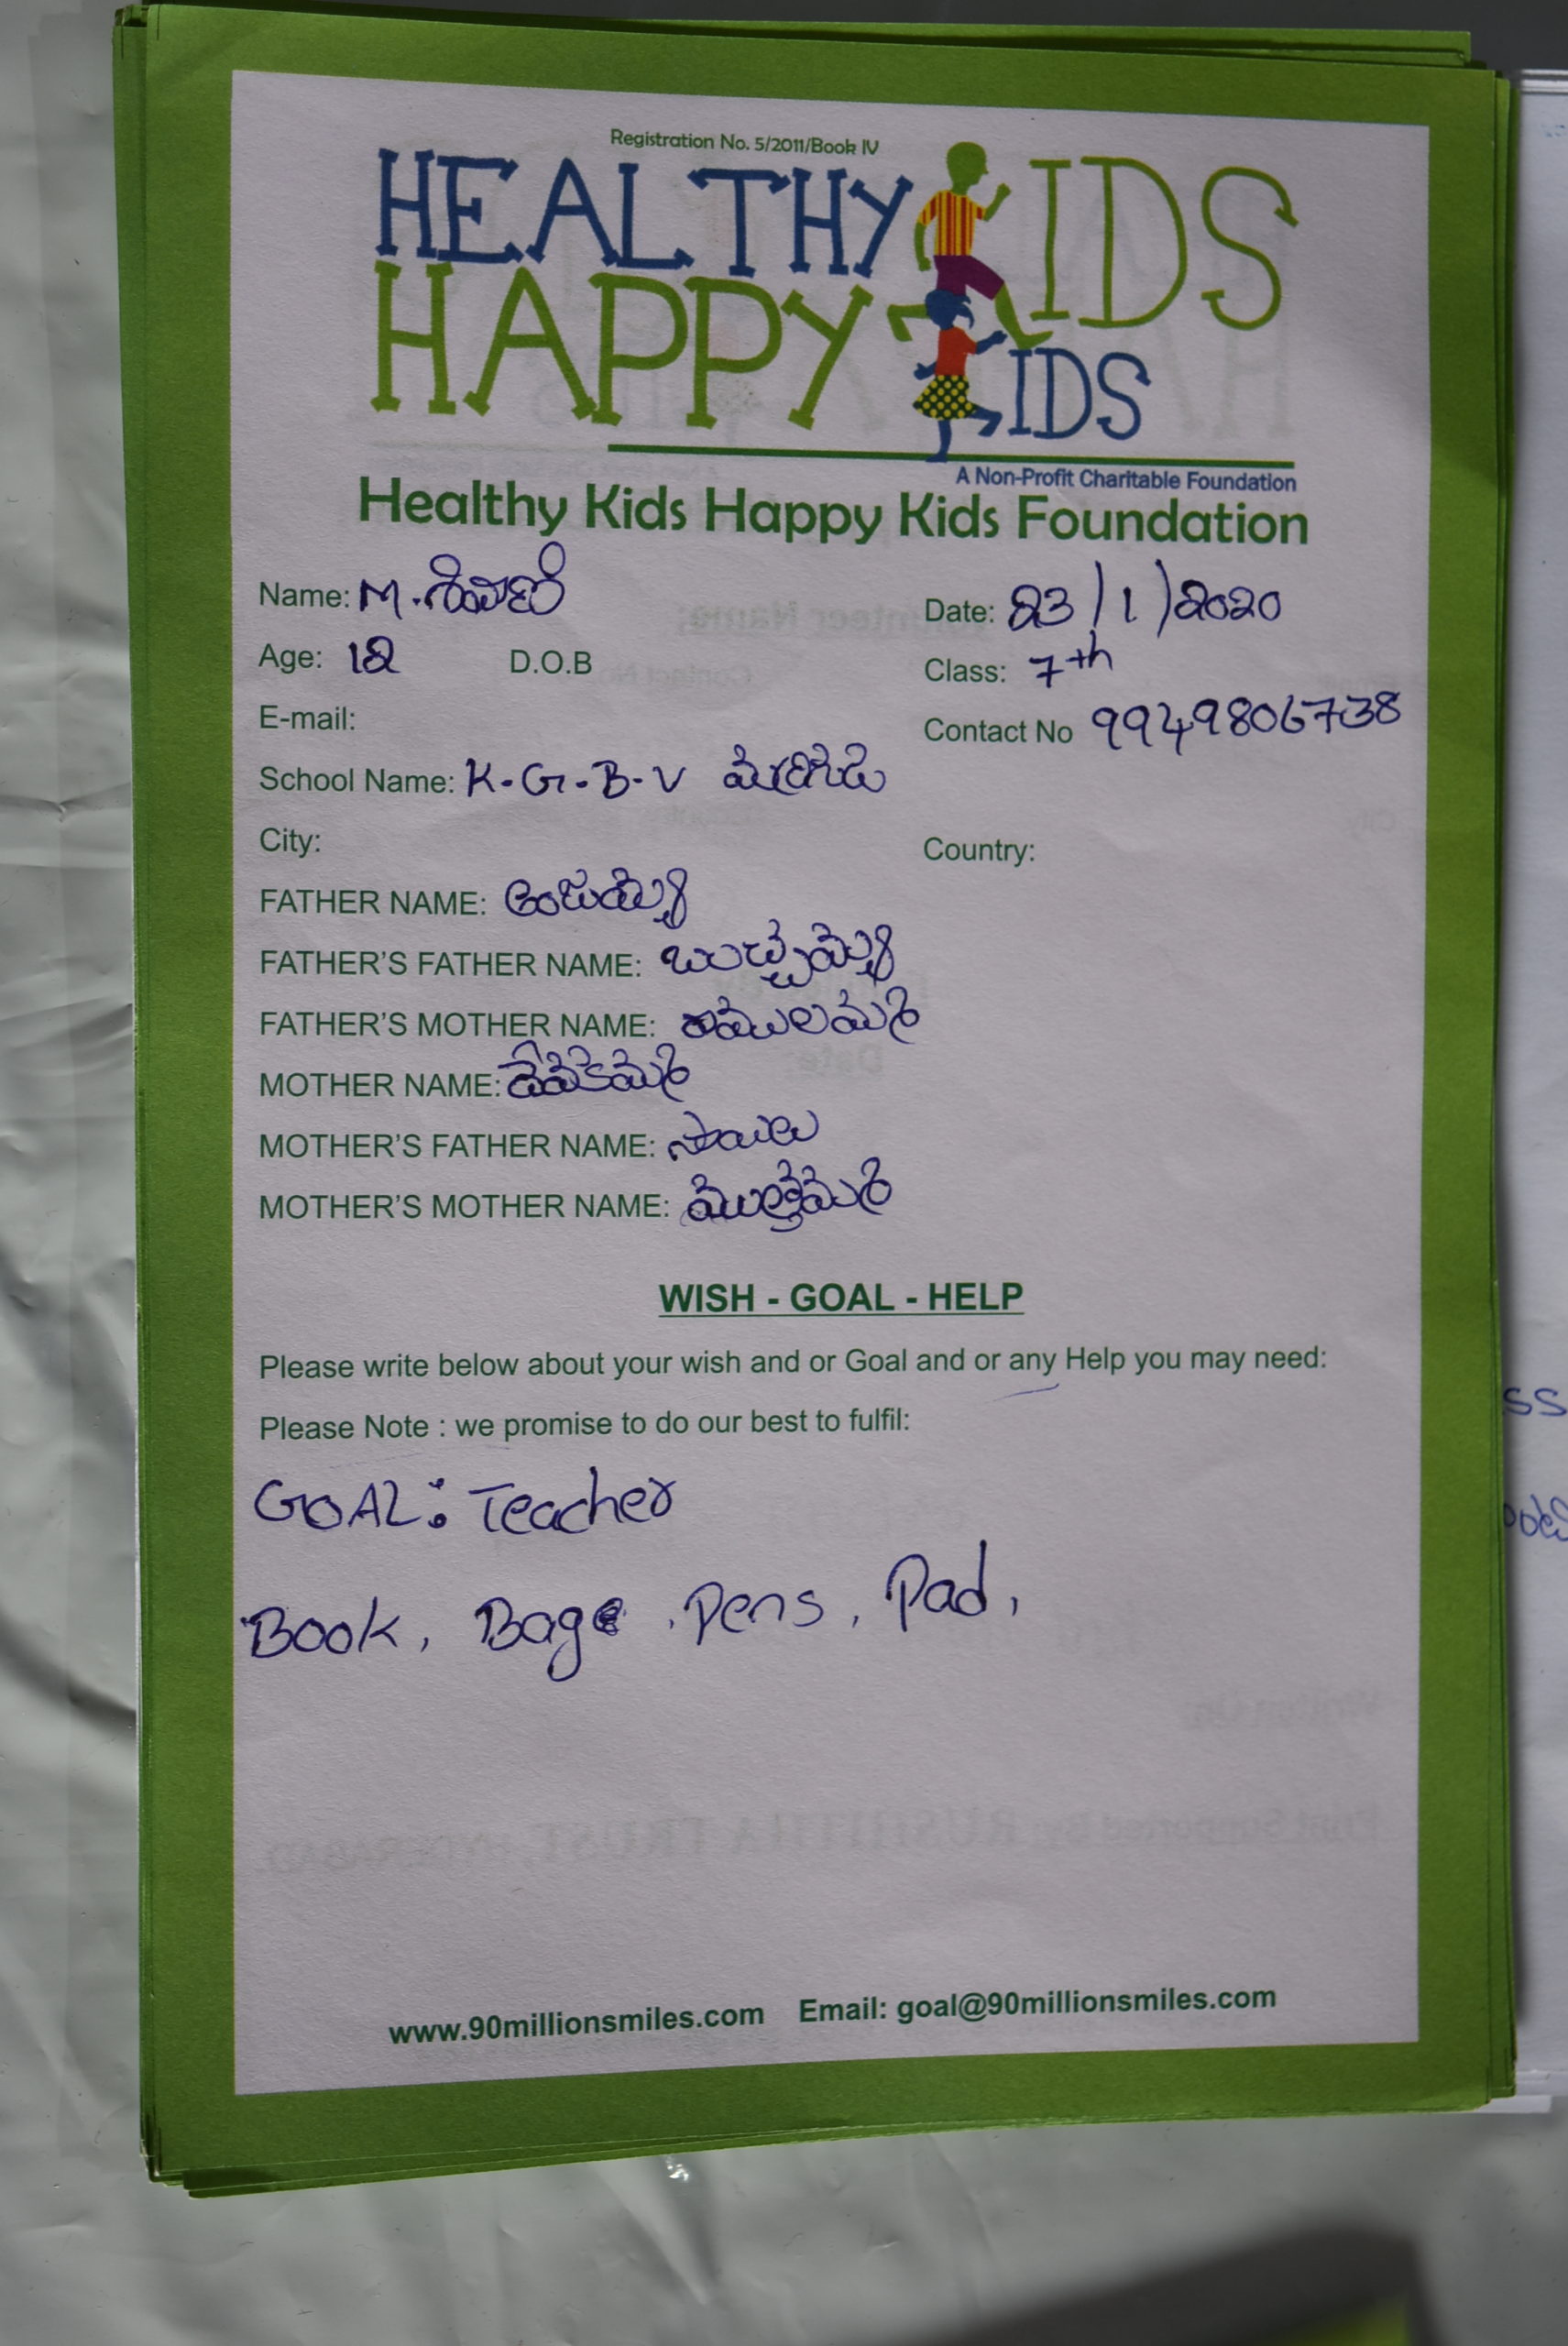 Registration No. 5/2011/Book IV
HEALTHY KIDS
HAPPY KIDS
A Non-Profit Charitable Foundation
Healthy Kids Happy Kids Foundation
Name: M. శివాణి Date: 23/1/2020
Age: 12 D.O.B Class: 7th
E-mail: Contact No 9949806738
School Name: K.G.B.V
City: Country:
FATHER NAME: అంజయ్య
FATHER'S FATHER NAME: బుచ్చయ్య
FATHER'S MOTHER NAME: రాములమ్మ
MOTHER NAME: దేవకమ్మ
MOTHER'S FATHER NAME: సాయిలు
MOTHER'S MOTHER NAME: ముత్తెమ్మ
WISH - GOAL - HELP
Please write below about your wish and or Goal and or any Help you may need:
Please Note : we promise to do our best to fulfil:
GOAL: Teacher
Book, Bag, Pens, Pad,
www.90millionsmiles.com Email: goal@90millionsmiles.com